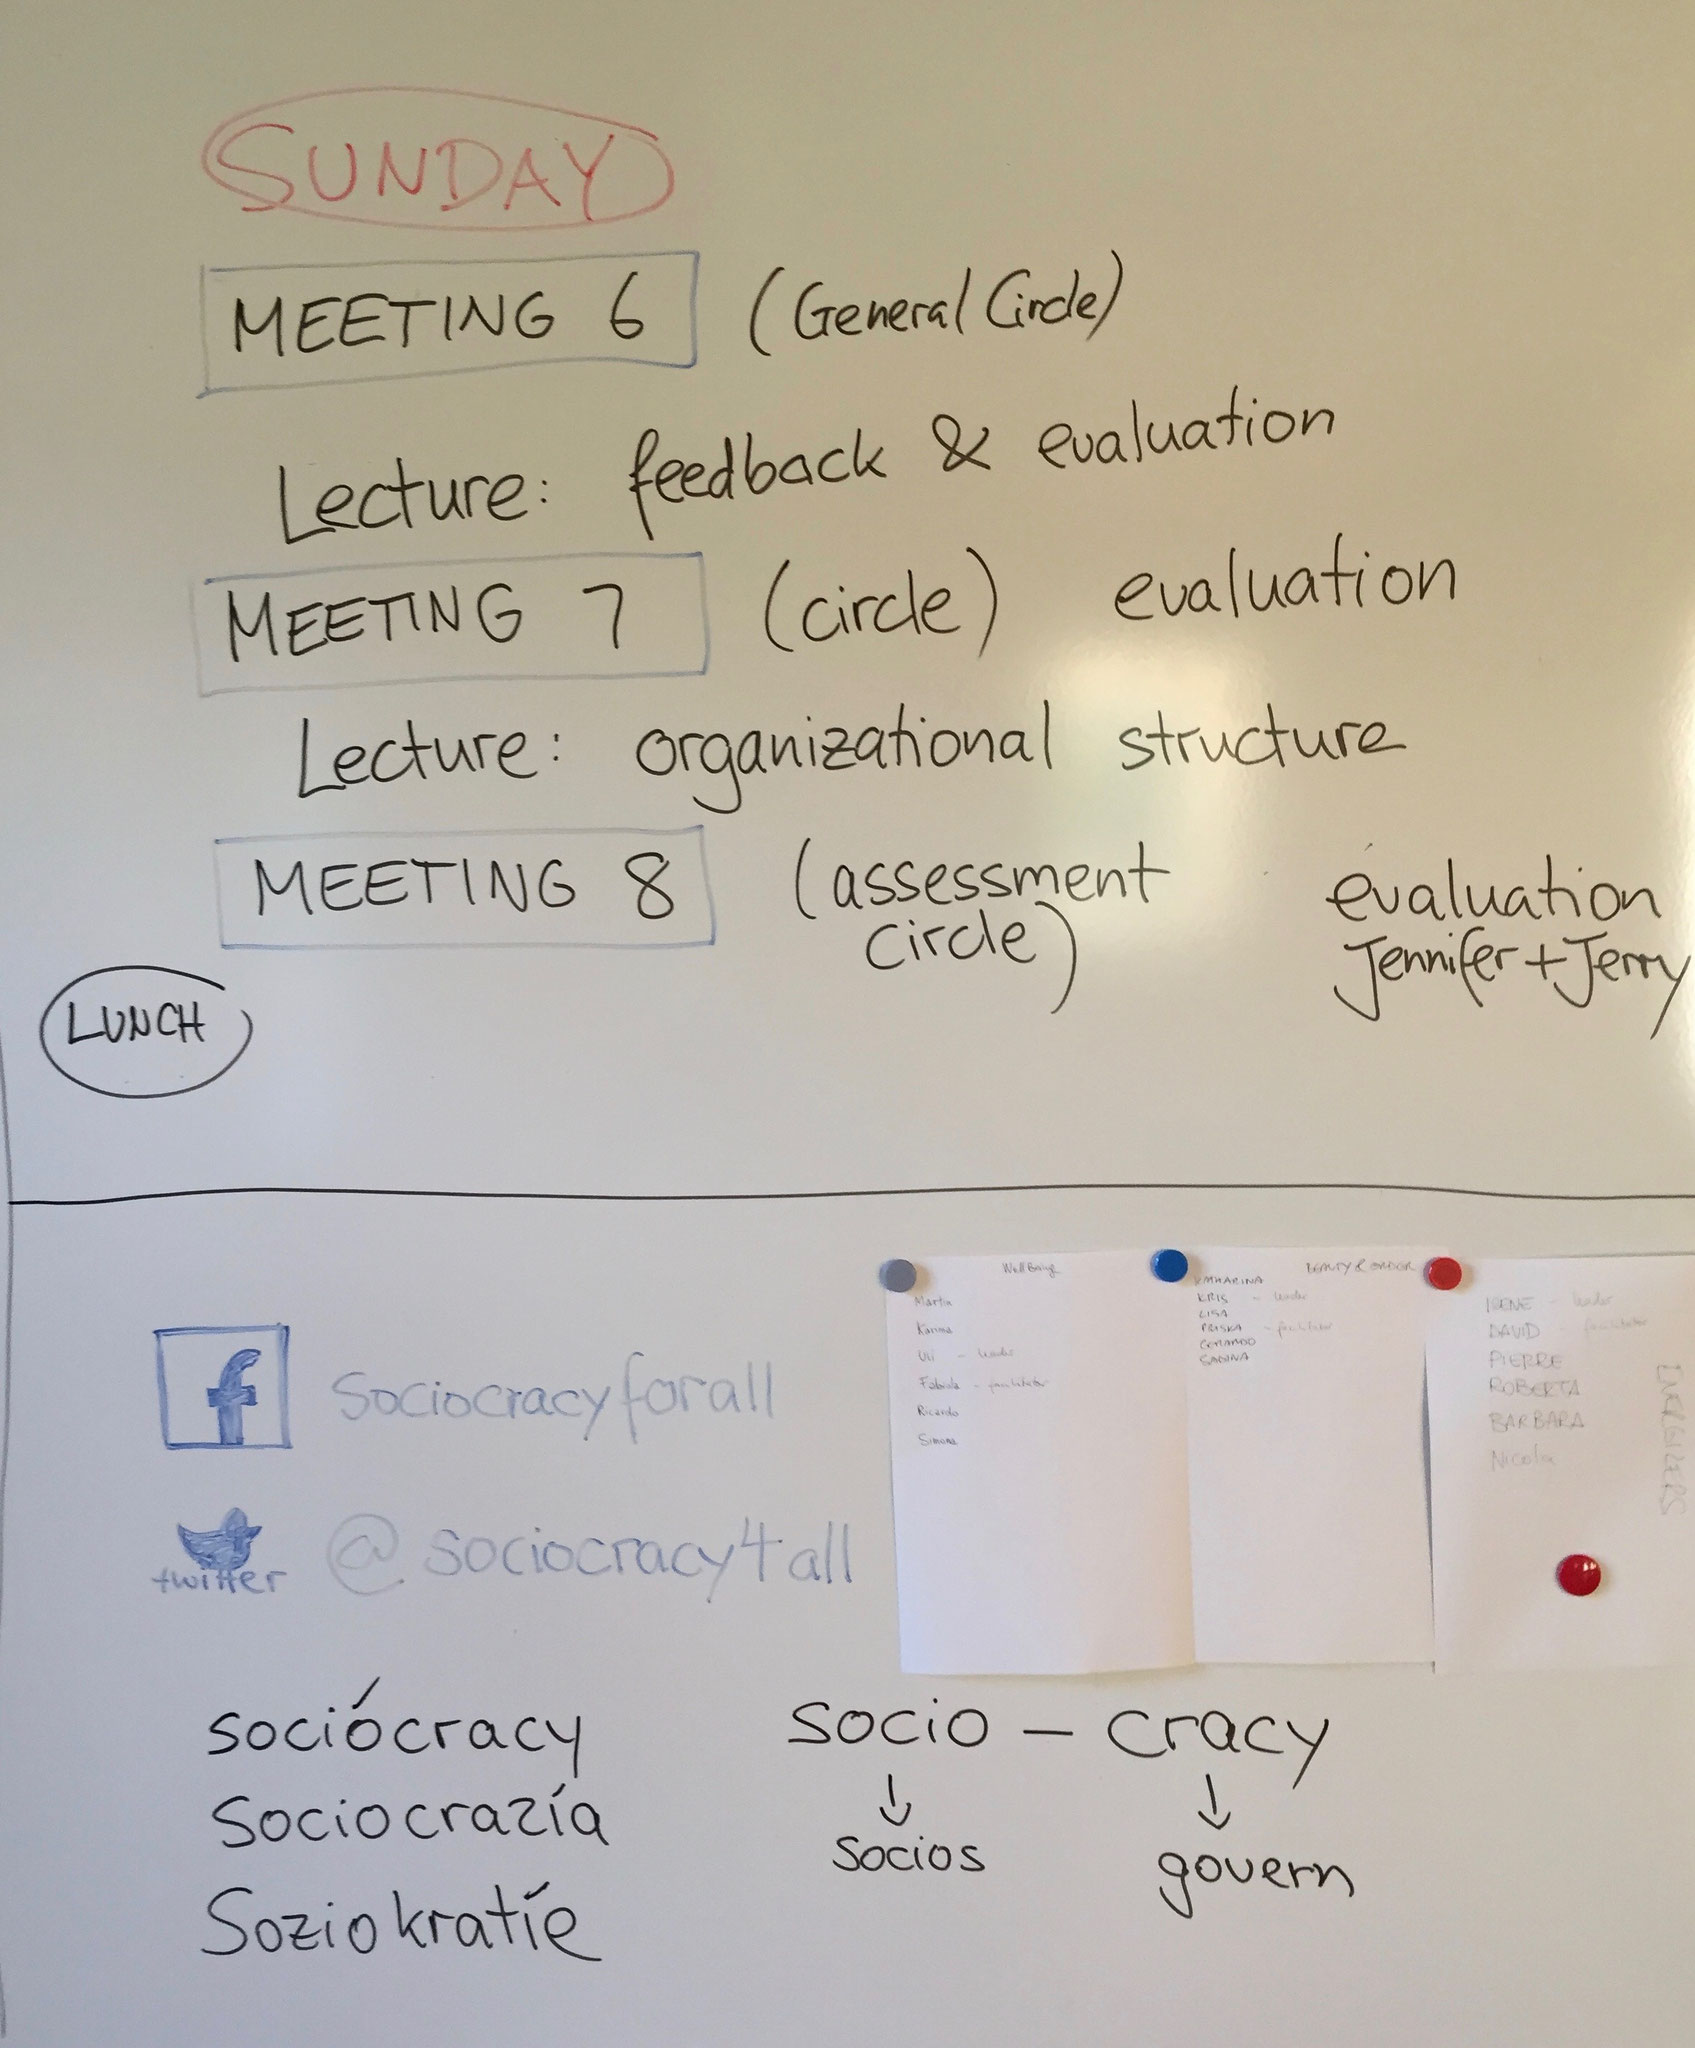 SUNDAY
MEETING 6 (General Circle)
Lecture: feedback & evaluation
MEETING 7 (circle) evaluation
Lecture: organizational structure
MEETING 8 (assessment circle) evaluation Jennifer + Jerry
LUNCH
f Sociocracyforall
twitter @sociocracy4all
Wellbeing
Martin
Karima
Uli - leader
Fabiola - facilitator
Ricardo
Simona
BEAUTY & ORDER
KATHARINA
KRIS - leader
LISA
PRISKA - facilitator
SABINA
IRENE - leader
DAVID - facilitator
PIERRE
ROBERTA
BARBARA
Nicola
ENERGIZERS
sociócracy
Sociocrazía
Soziokratíe
socio - cracy
↓ ↓
socios govern